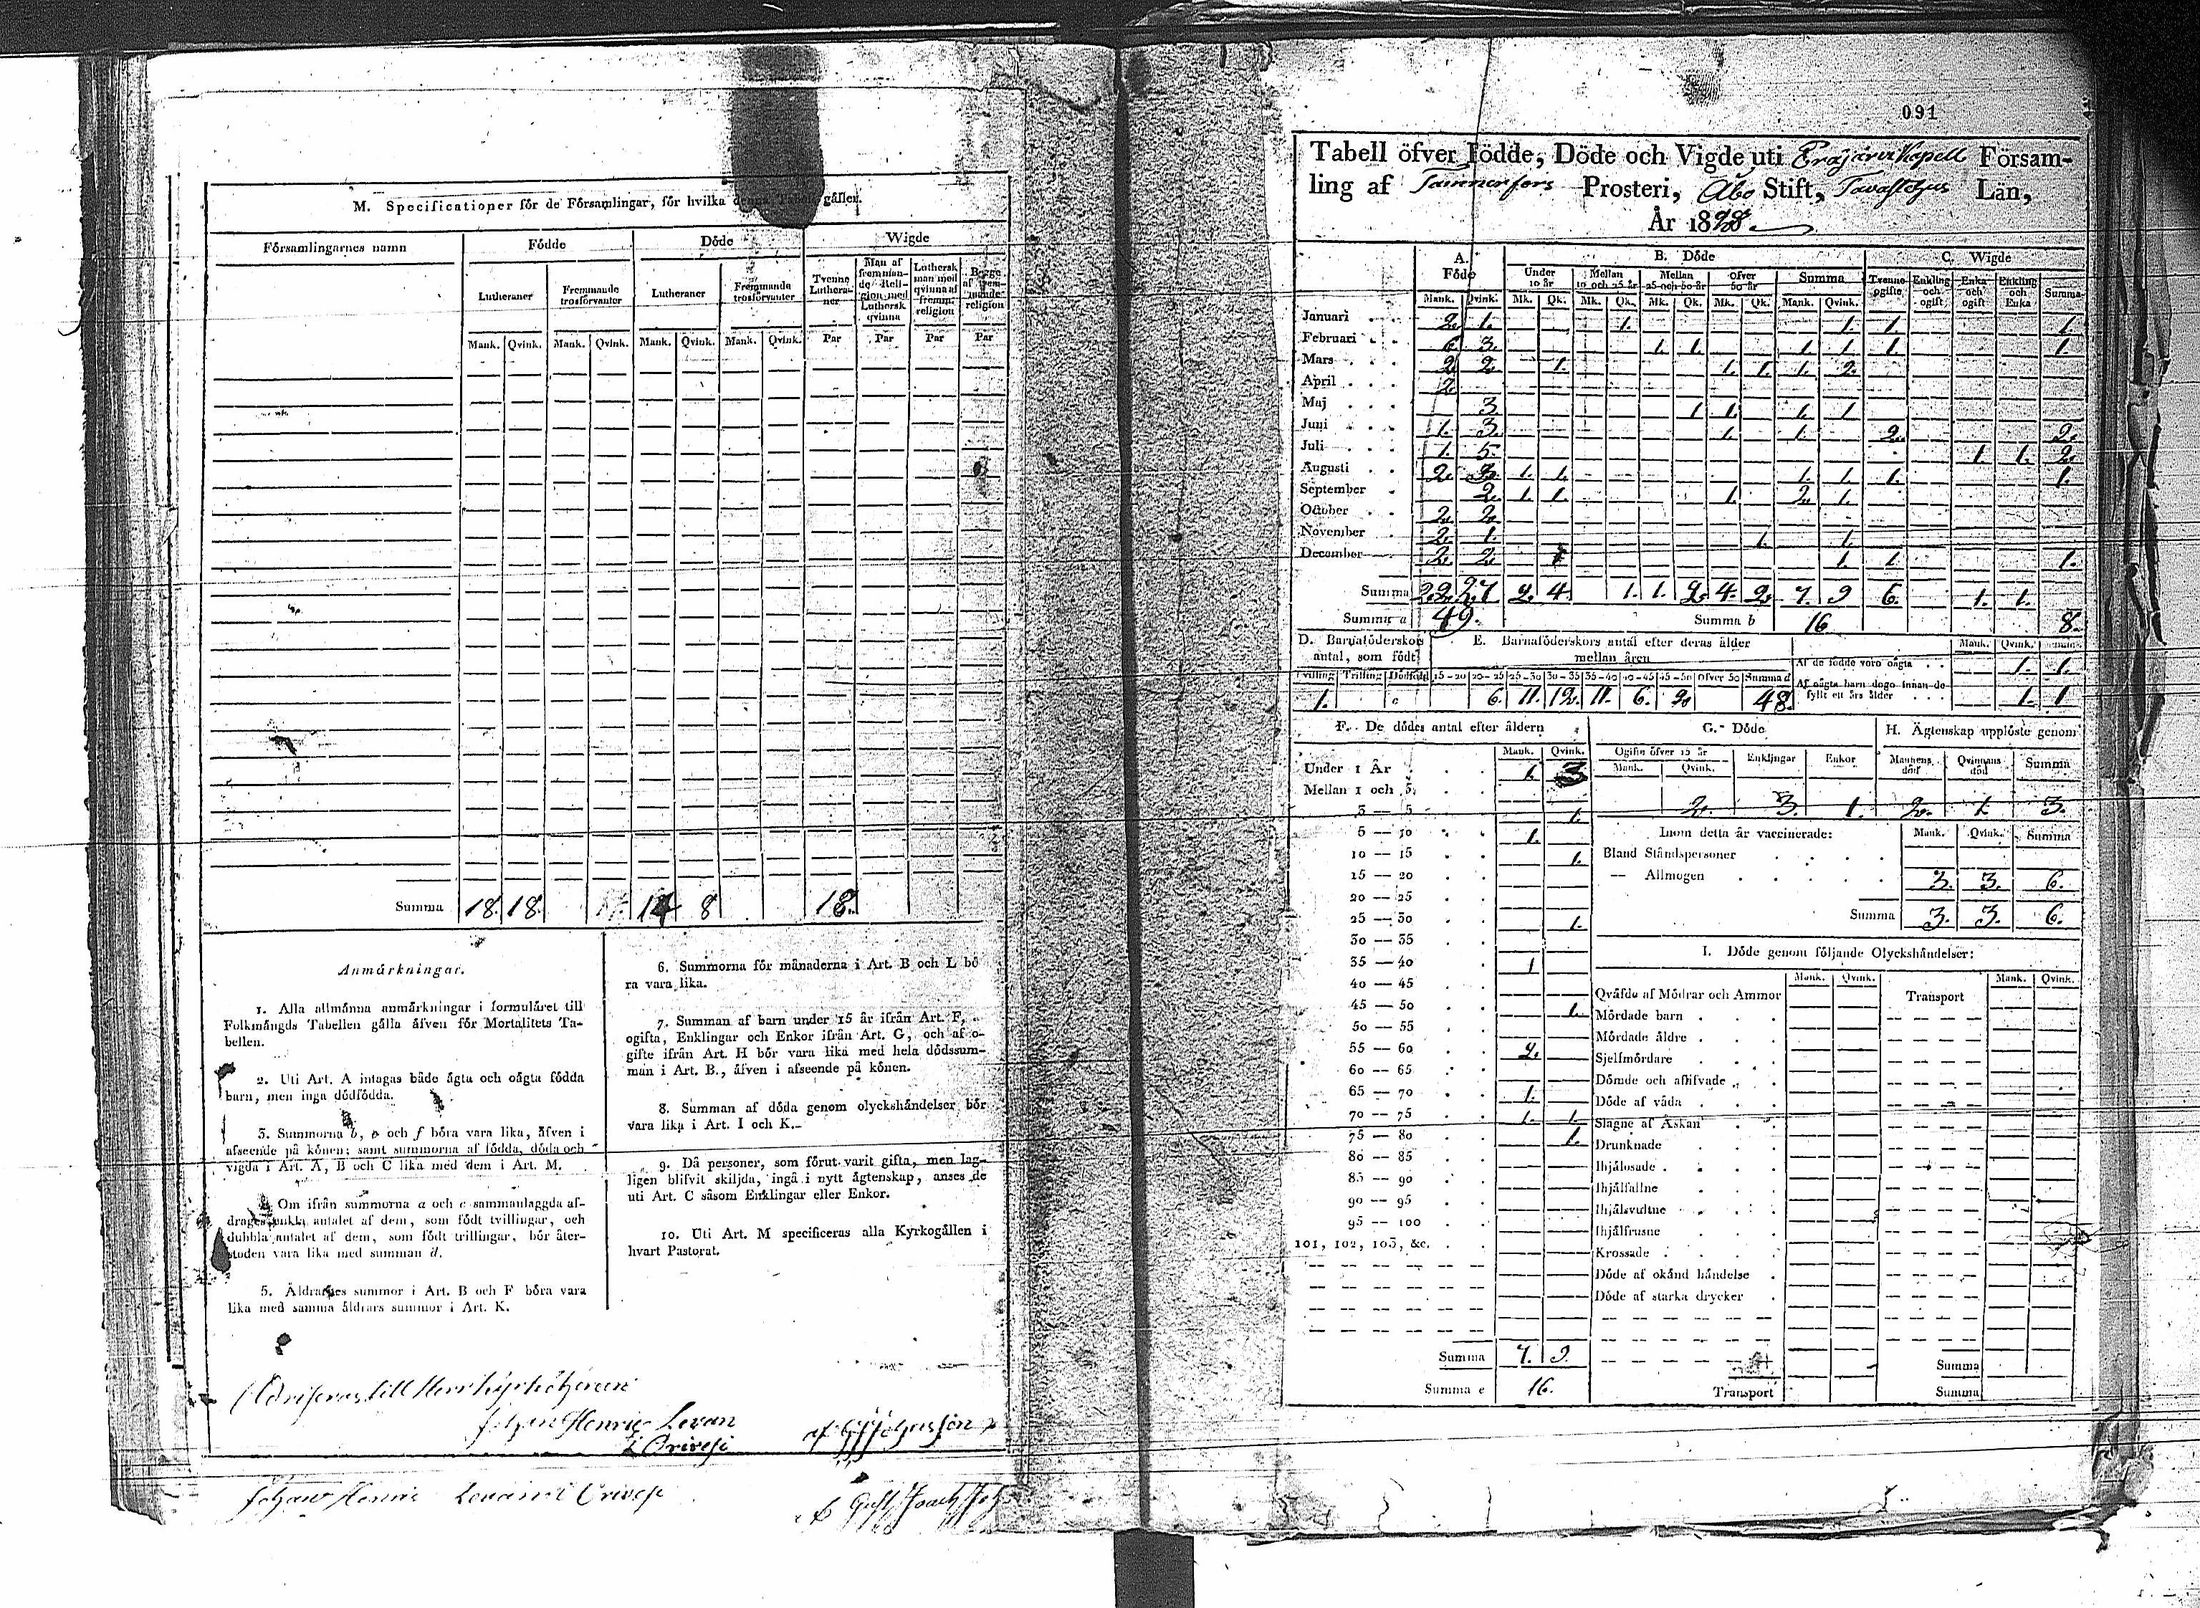 M. Specificationer för de Församlingar, för hvilka denna Tabell gäller.
Församlingarnes namn Födde Döde Wigde
Lutheraner Fremmande trosförvanter Lutheraner Fremmande trosförvanter Tvenne Lutheraner Man af fremmande Religion med Luthersk qvinna Luthersk man med qvinna af fremm. religion Begge af fremmande religion
Mank. Qvink. Mank. Qvink. Mank. Qvink. Mank. Qvink. Par Par Par Par
Summa 18. 18. 14 8 18.
Anmärkningar.
1. Alla allmänna anmärkningar i formuläret till
Folkmängds Tabellen gälla äfven för Mortalitets Ta-
bellen.
2. Uti Art. A intagas både ägta och oägta födda
barn, men inga dödfödda.
3. Summorna b, e och f böra vara lika, äfven i
afseende på könen; samt summorna af födda, döda och
vigda i Art. A, B och C lika med dem i Art. M.
4. Om ifrån summorna a och c sammanlaggda af-
drages enkla antalet af dem, som födt tvillingar, och
dubbla antalet af dem, som födt trillingar, bör åter-
stoden vara lika med summan d.
5. Åldrarnes summor i Art. B och F böra vara
lika med samma åldrars summor i Art. K.
6. Summorna för månaderna i Art. B och L bö
ra vara lika.
7. Summan af barn under 15 år ifrån Art. F,
ogifta, Enklingar och Enkor ifrån Art. G, och af o-
gifte ifrån Art. H bör vara lika med hela dödssum-
man i Art. B., äfven i afseende på könen.
8. Summan af döda genom olyckshändelser bör
vara lika i Art. I och K.
9. Då personer, som förut varit gifta, men lag-
ligen blifvit skiljda, ingå i nytt ägtenskap, anses de
uti Art. C såsom Enklingar eller Enkor.
10. Uti Art. M specificeras alla Kyrkogällen i
hvart Pastorat.
Johan Henric Levan
i Orivesi
091
Tabell öfver Födde, Döde och Vigde uti Eräjärvi Kapell Försam-
ling af Tammerfors Prosteri, Åbo Stift, Tavastehus Län,
År 1828.
A. Föde B. Döde C. Wigde
Under 10 år Mellan 10 och 25 år Mellan 25 och 50 år Öfver 50 år Summa Tvenne ogifte Enkling och ogift Enka och ogift Enkling och Enka Summa
Mank. Qvink. Mk. Qk. Mk. Qk. Mk. Qk. Mk. Qk. Mank. Qvink.
Januari 2. 1. 1. 1. 1. 1.
Februari 6 3. 1. 1. 1. 1. 1. 1.
Mars 2 2. 1. 1. 1. 1. 2.
April 2.
Maj 3. 1 1. 1. 1.
Juni 1. 3. 1. 1. 2. 2.
Juli 1. 5. 1 1. 2.
Augusti 2. 3. 1. 1. 1. 1. 1. 1.
September 2. 1. 1. 1. 2. 1.
October 2. 2.
November 2. 1. 1. 1.
December 2. 2. 1 1. 1. 1.
Summa 22. 27 2. 4. 1. 1. 2. 4. 2. 7. 9 6. 1. 1.
Summa a 49. Summa b 16 8.
D. Barnaföderskors antal, som födt
Tvilling Trilling Dödfödd
1.
E. Barnaföderskors antal efter deras ålder mellan åren
15—20 20—25 25—30 30—35 35—40 40—45 45—50 Öfver 50 Summa d
6. 11. 12. 11. 6. 2. 48.
Mank. Qvink. Summa
Af de födde voro oägta 1. 1.
Af oägta barn dogo innan de fyllt ett års ålder 1. 1
F. De dödes antal efter åldern
Mank. Qvink.
Under 1 År 1. 3
Mellan 1 och 3
3 — 5 1.
5 — 10 1.
10 — 15 1.
15 — 20
20 — 25
25 — 30 1.
30 — 35
35 — 40 1
40 — 45
45 — 50 1.
50 — 55
55 — 60 2.
60 — 65
65 — 70 1.
70 — 75 1. 1.
75 — 80 1.
80 — 85
85 — 90
90 — 95
95 — 100
101, 102, 103, &c.
Summa 7. 9.
Summa e 16.
G. Döde
Ogifte öfver 15 år Enklingar Enkor
Mank. Qvink.
2. 3. 1.
H. Ägtenskap upplöste genom
Mannens död Qvinnans död Summa
2. 1. 3.
Inom detta år vaccinerade: Mank. Qvink. Summa
Bland Ståndspersoner
— Allmogen 3. 3. 6.
Summa 3. 3. 6.
I. Döde genom följande Olyckshändelser:
Mank. Qvink. Mank. Qvink.
Qväfde af Mödrar och Ammor Transport
Mördade barn
Mördade äldre
Sjelfmördare
Dömde och aflifvade
Döde af våda
Slagne af Åskan
Drunknade
Ihjälosade
Ihjälfallne
Ihjälsvultne
Ihjälfrusne
Krossade
Döde af okänd händelse
Döde af starka drycker
Summa
Transport Summa